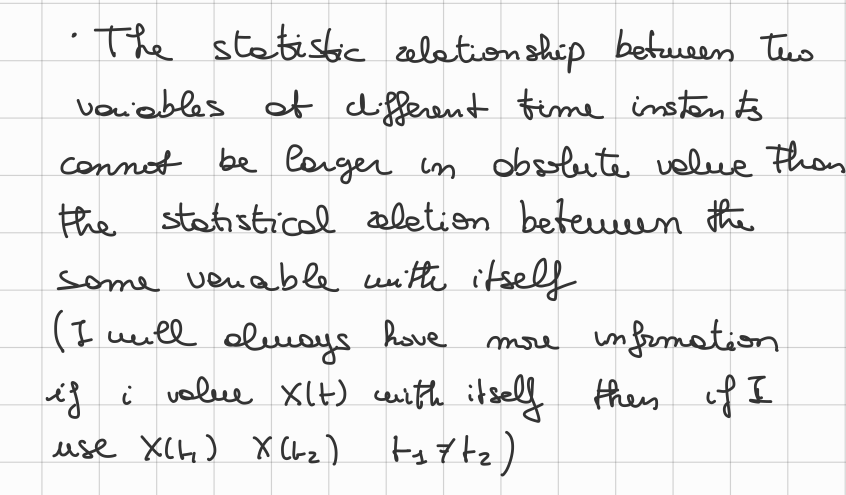 · The statistic relationship between two
variables at different time instants
cannot be larger in absolute value than
the statistical relation between the
same variable with itself
(I will always have more infrmation
if i value X(t) with itself then if I
use X(t₁) X(t₂) t₁ ≠ t₂)